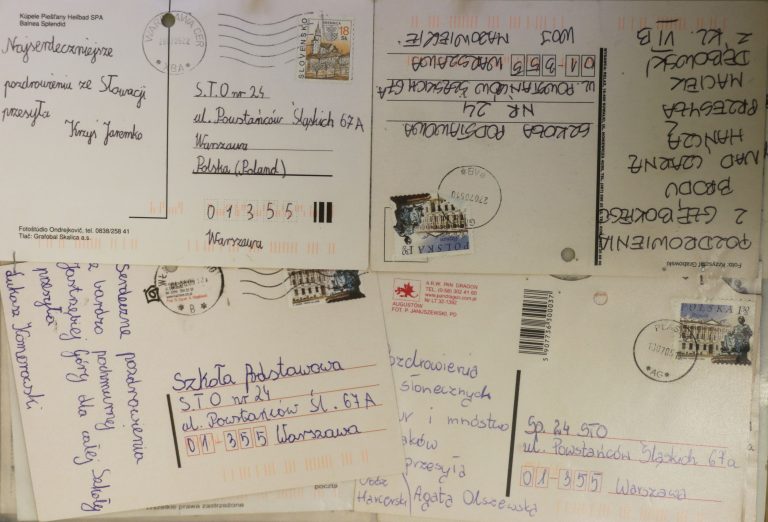 Kúpele Piešťany Heilbad SPA
Balnea Splendid
WARSZAWA CER
ABA
SLOVENSKO
18
Sk
Najserdeczniejsze
pozdrowienia ze Słowacji
przesyła
Krzyś Jaremko
S.T.O nr 24
ul. Powstańców Śląskich 67A
Warszawa
Polska (Poland)
01355
Warszawa
Fotoštúdio Ondrejkovič, tel. 0838/258 41
Tlač: Grafobal Skalica a.s.
POZDROWIENIA
Z GŁĘBOKIEGO
BRODU
NAD CZARNĄ
HAŃCZĄ
PRZESYŁA
MACIEK
DĘBOWSKI
Z KL. VI B
SZKOŁA PODSTAWOWA
NR 24
UL. POWSTAŃCÓW ŚLĄSKICH 67A
01-355 WARSZAWA
WOJ. MAZOWIECKIE
270705
POLSKA
Foto: Krzysztof Grabowski
Serdeczne pozdrowienia
z bardzo pochmurnej
Jastrzębiej Góry dla całej Szkoły
przesyła
Łukasz Komorowski
B
Szkoła Podstawowa
S.T.O nr 24
ul. Powstańców Śl. 67A
01-355 Warszawa
poczta
Wszelkie prawa zastrzeżone
A.R.W. PAN DRAGON
AUGUSTÓW
FOT. P. JANUSZEWSKI, PD
5907736300037
POLSKA
PŁASKA
AG
ozdrowienia
słonecznych
i mnóstwo
przesyła
Agata Olszewska
Harcerski)
Sp. 24 STO
ul. Powstańców Śląskich 67a
01-355 Warszawa